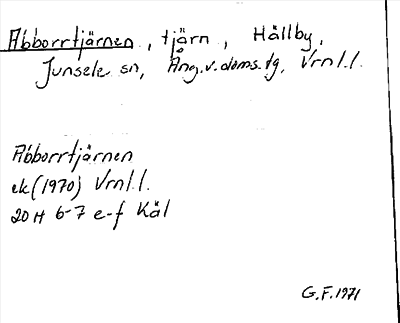 Abborrtjärnen, tjärn, Hällby,
Junsele sn, Ång.v.doms.tg, Vrnl.l.
Abborrtjärnen
ek (1970) Vrnl.l.
20 H 6-7 e-f Käl
G.F. 1971